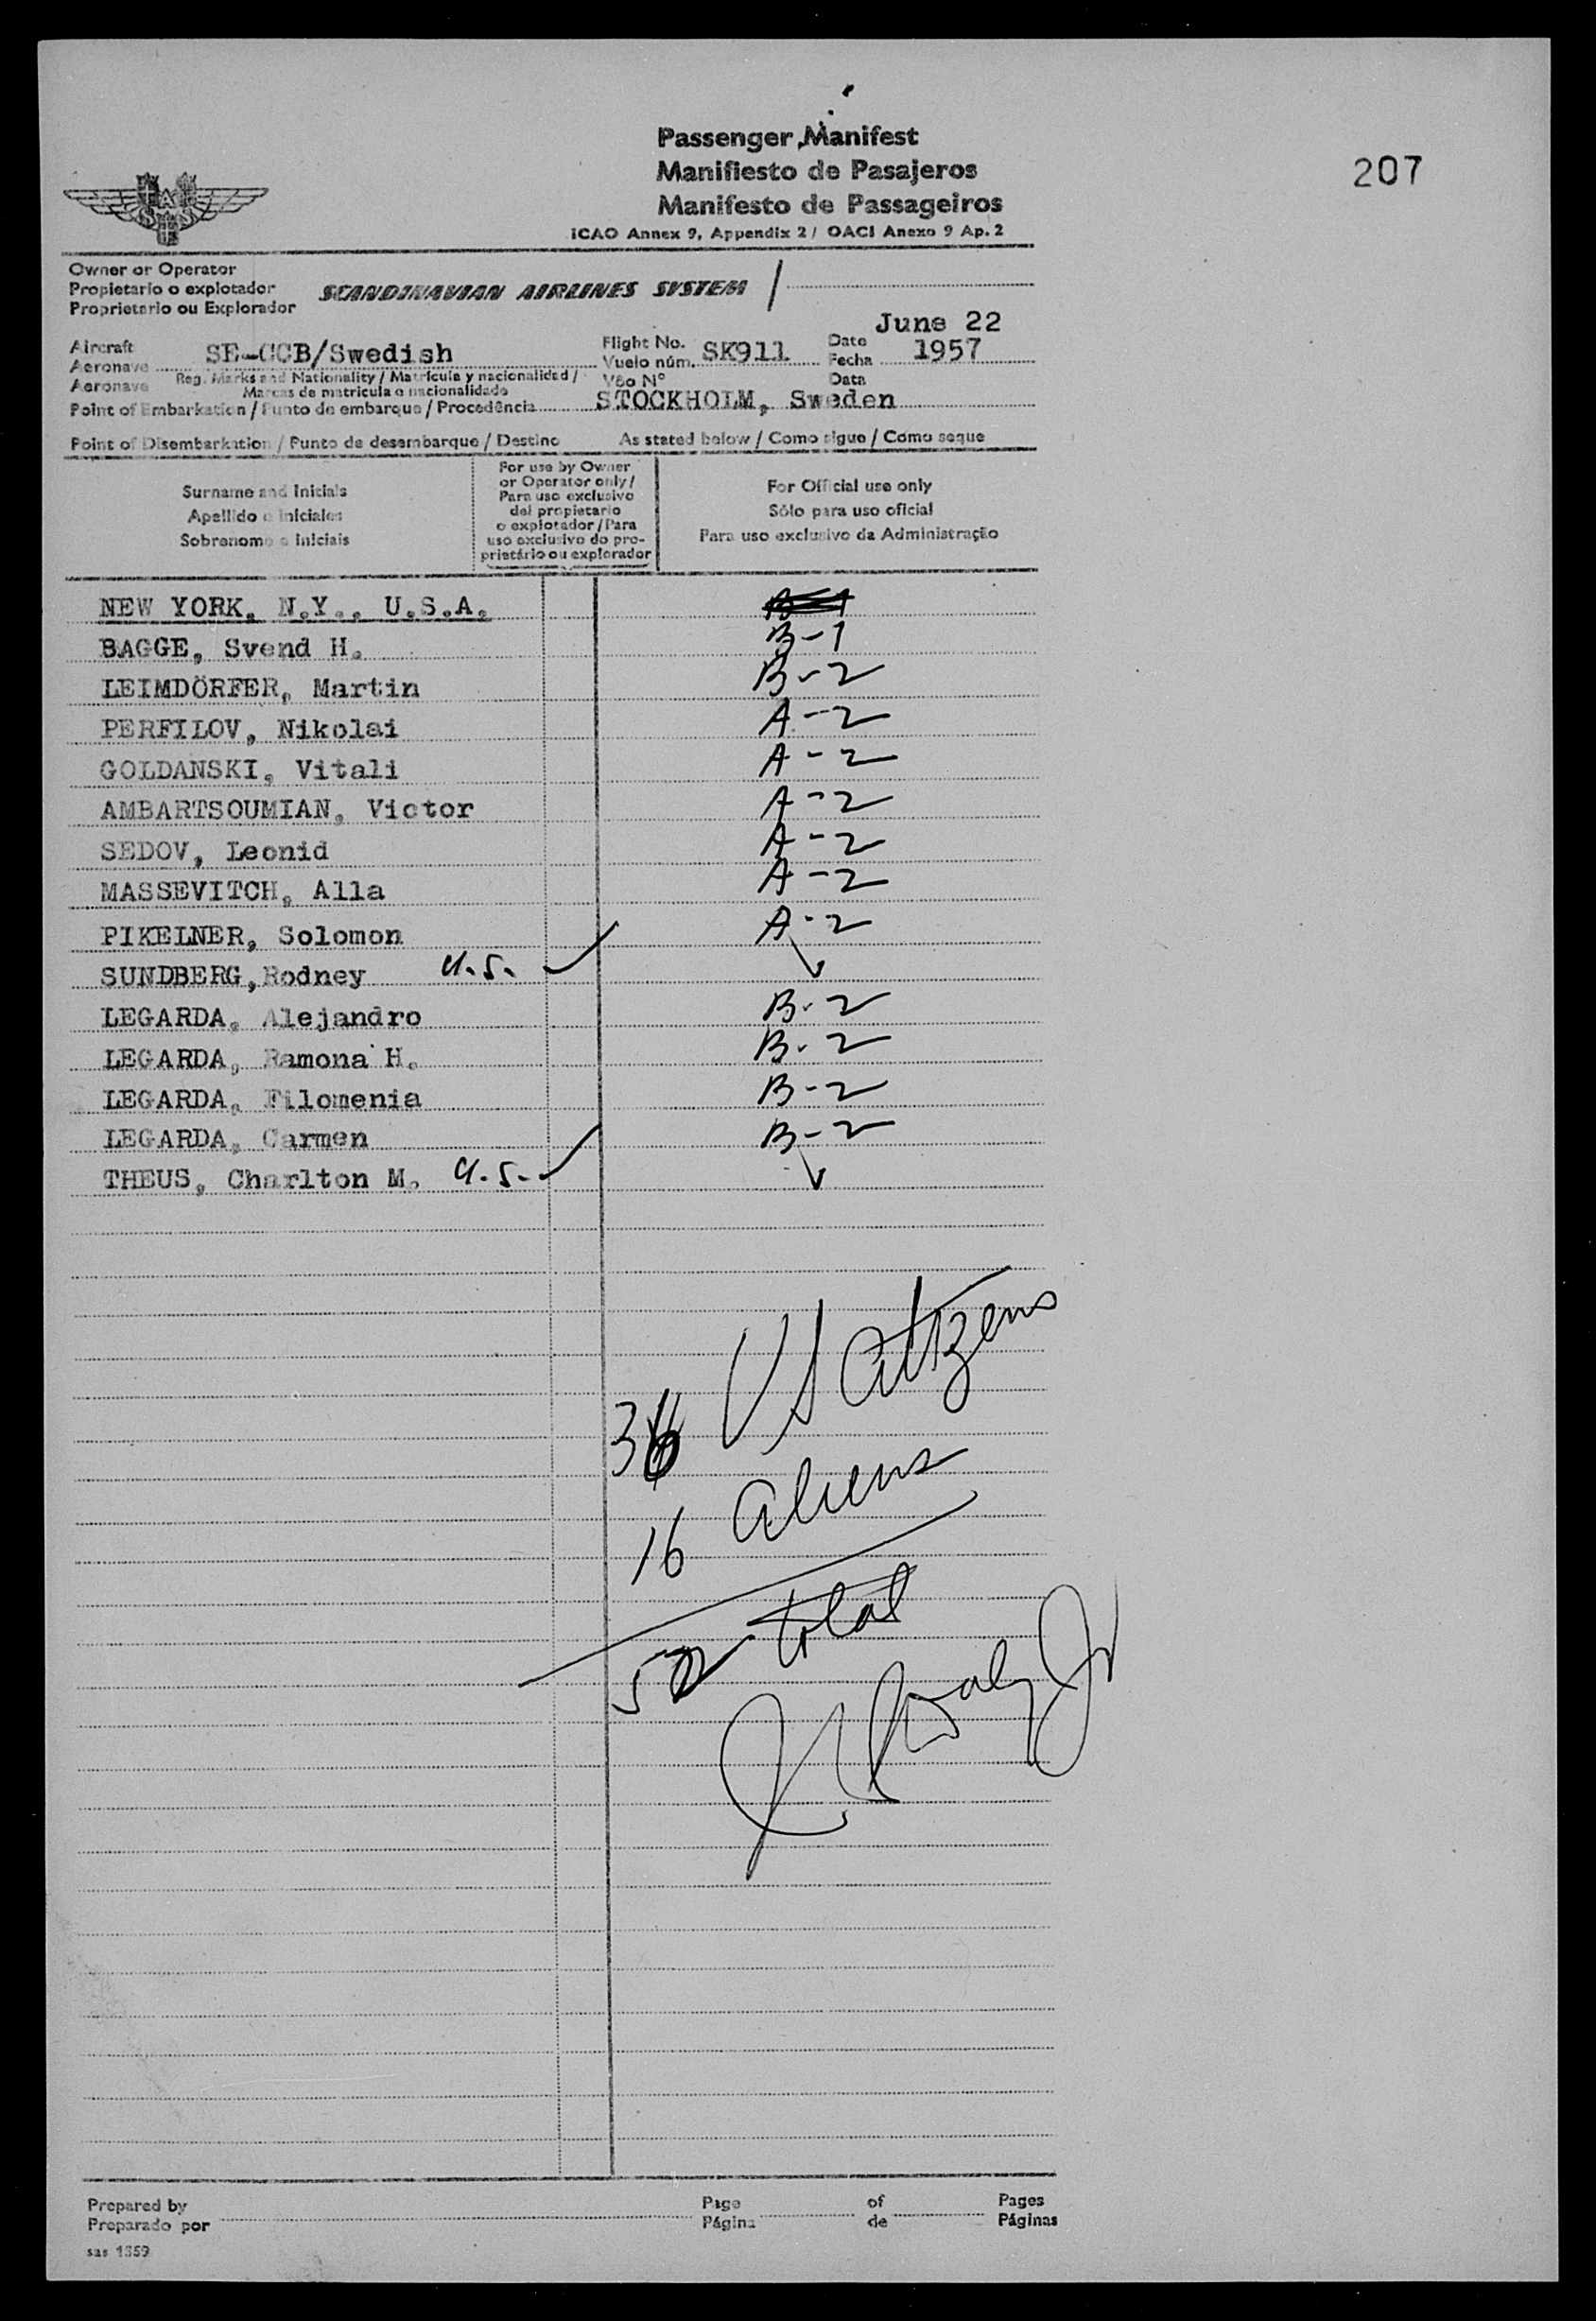 Passenger Manifest
Manifiesto de Pasajeros
Manifesto de Passageiros
ICAO Annex 9, Appendix 2 / OACI Anexo 9 Ap. 2
207
SAS
Owner or Operator
Propietario o explotador
Proprietario ou Explorador
SCANDINAVIAN AIRLINES SYSTEM /
Aircraft
Aeronave
Aeronave
SE-CCB/Swedish
Reg. Marks and Nationality / Matrícula y nacionalidad /
Marcas de matricula e nacionalidade
Flight No.
Vuelo núm.
Vôo Nº
SK911
Date
Fecha
Data
June 22
1957
Point of Embarkation / Punto de embarque / Procedência
STOCKHOLM, Sweden
Point of Disembarkation / Punto de desembarque / Destino
As stated below / Como sigue / Como segue
Surname and Initials
Apellido e iniciales
Sobrenome e Iniciais
For use by Owner
or Operator only /
Para uso exclusivo
del propietario
o explotador / Para
uso exclusivo do pro-
prietário ou explorador
For Official use only
Sólo para uso oficial
Para uso exclusivo da Administração
NEW YORK, N.Y., U.S.A.
BAGGE, Svend H. B-1
LEIMDÖRFER, Martin B-2
PERFILOV, Nikolai A-2
GOLDANSKI, Vitali A-2
AMBARTSOUMIAN, Victor A-2
SEDOV, Leonid A-2
MASSEVITCH, Alla A-2
PIKELNER, Solomon A-2
SUNDBERG, Rodney U.S.
LEGARDA, Alejandro B-2
LEGARDA, Ramona H. B-2
LEGARDA, Filomenia B-2
LEGARDA, Carmen B-2
THEUS, Charlton M. U.S.
36 US Citizens
16 aliens
52 total
Prepared by
Preparado por
Page
Página
of
de
Pages
Páginas
sas 1359